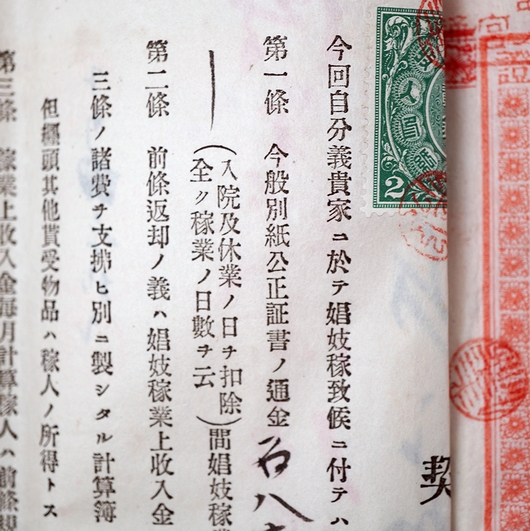 契
今回自分義貴家ニ於テ娼妓稼致候ニ付テハ
第一條 今般別紙公正証書ノ通金百八
(入院及休業ノ日ヲ扣除
全ク稼業ノ日數ヲ云)間娼妓稼
第二條 前條返却ノ義ハ娼妓稼業上收入金
三條ノ諸費ヲ支拂ヒ別ニ製シタル計算簿
但纒頭其他貰受物品ハ稼人ノ所得トス
第三條 稼業上收入金每月計算稼人ハ前條規
2